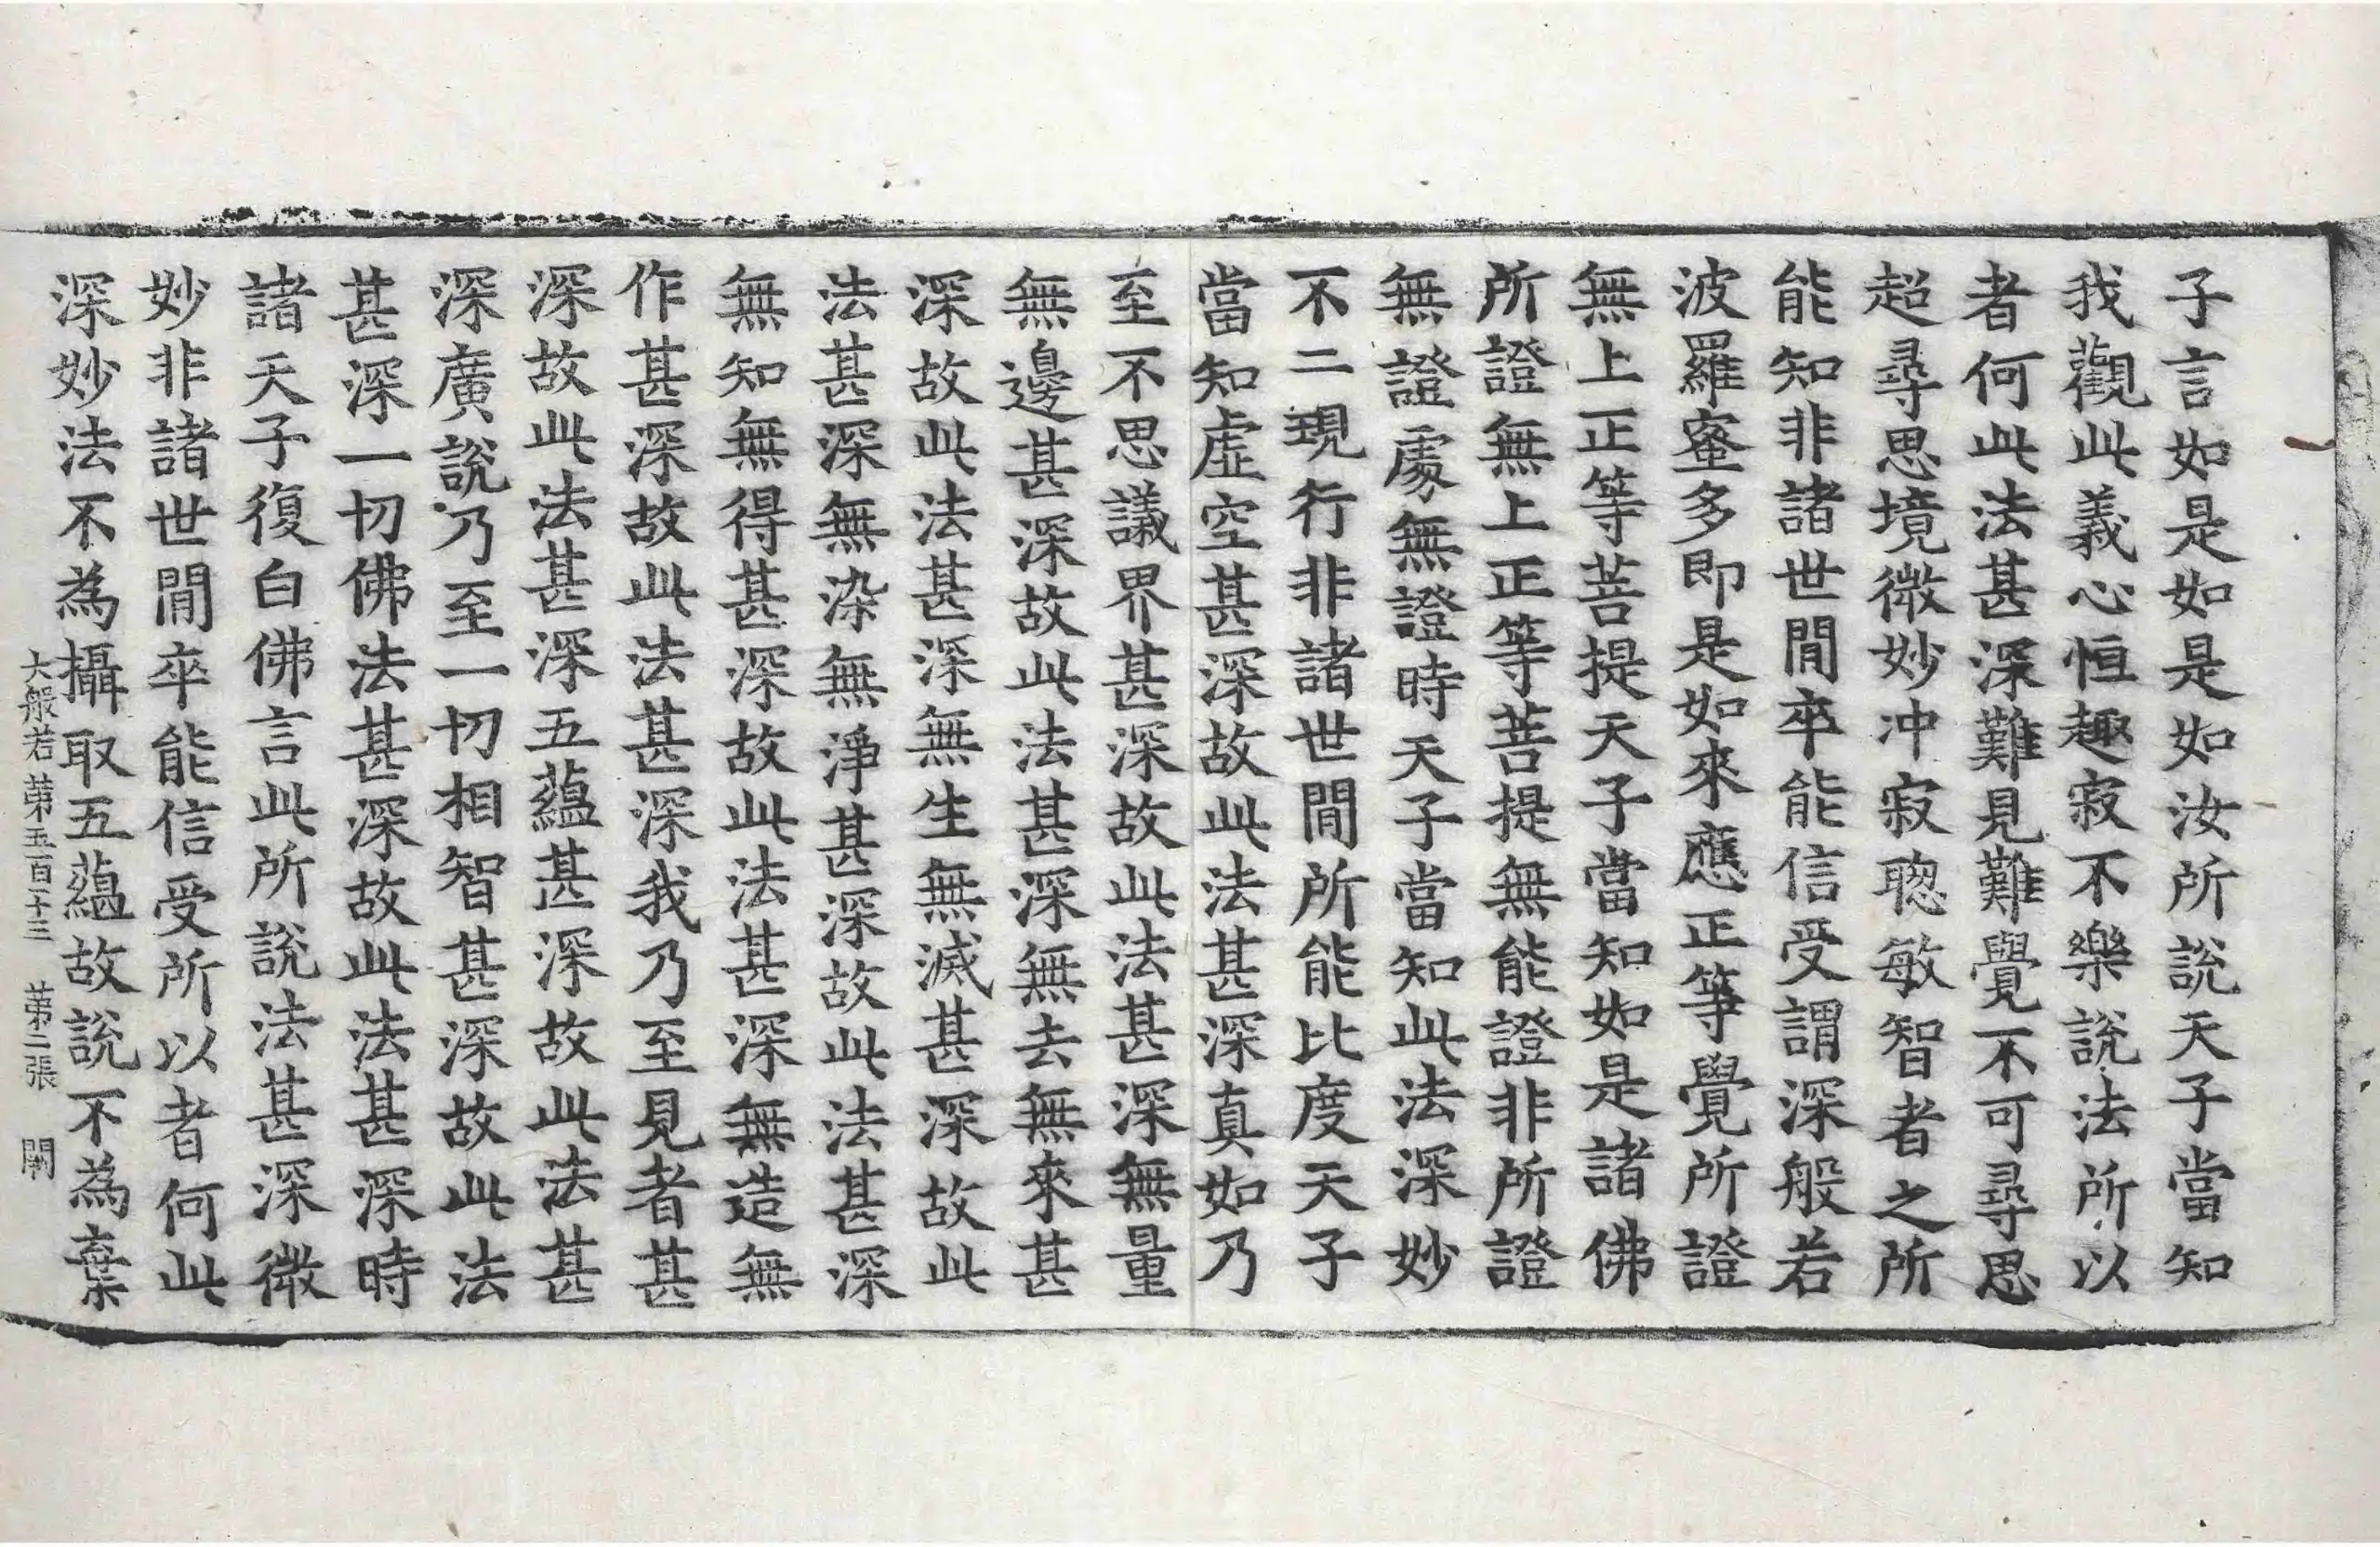 子言如是如是如汝所說天子當知
我觀此義心恒趣寂不樂說法所以
者何此法甚深難見難覺不可尋思
超尋思境微妙沖寂聰敏智者之所
能知非諸世閒卒能信受謂深般若
波羅蜜多即是如來應正等覺所證
無上正等菩提天子當知如是諸佛
所證無上正等菩提無能證非所證
無證處無證時天子當知此法深妙
不二現行非諸世閒所能比度天子
當知虛空甚深故此法甚深真如乃
至不思議界甚深故此法甚深無量
無邊甚深故此法甚深無去無來甚
深故此法甚深無生無滅甚深故此
法甚深無染無淨甚深故此法甚深
無知無得甚深故此法甚深無造無
作甚深故此法甚深我乃至見者甚
深故此法甚深五蘊甚深故此法甚
深廣說乃至一切相智甚深故此法
甚深一切佛法甚深故此法甚深時
諸天子復白佛言此所說法甚深微
妙非諸世閒卒能信受所以者何此
深妙法不為攝取五蘊故說不為棄
大般若第五百十三 第二張 闕